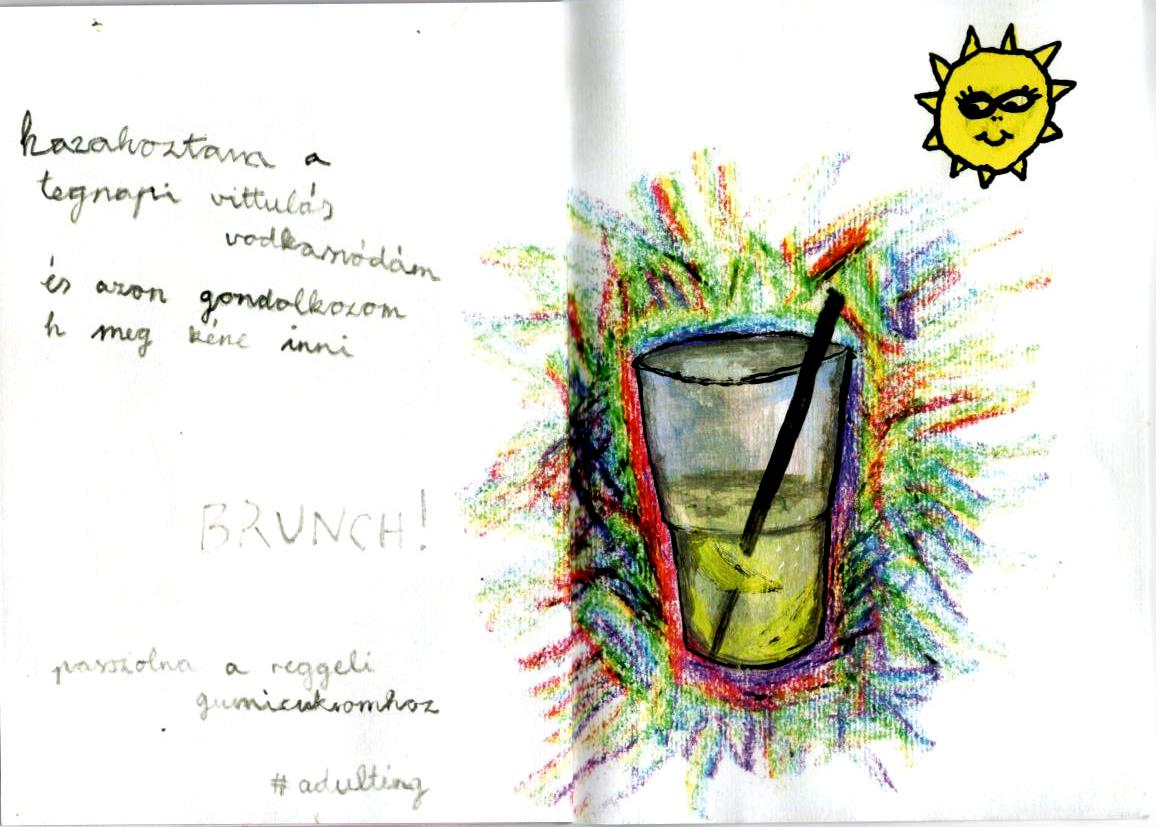 hazahoztam a
tegnapi vittulás
vodkaszódám
és azon gondolkozom
h meg kéne inni
BRUNCH!
passzolna a reggeli
gumicukromhoz
#adulting